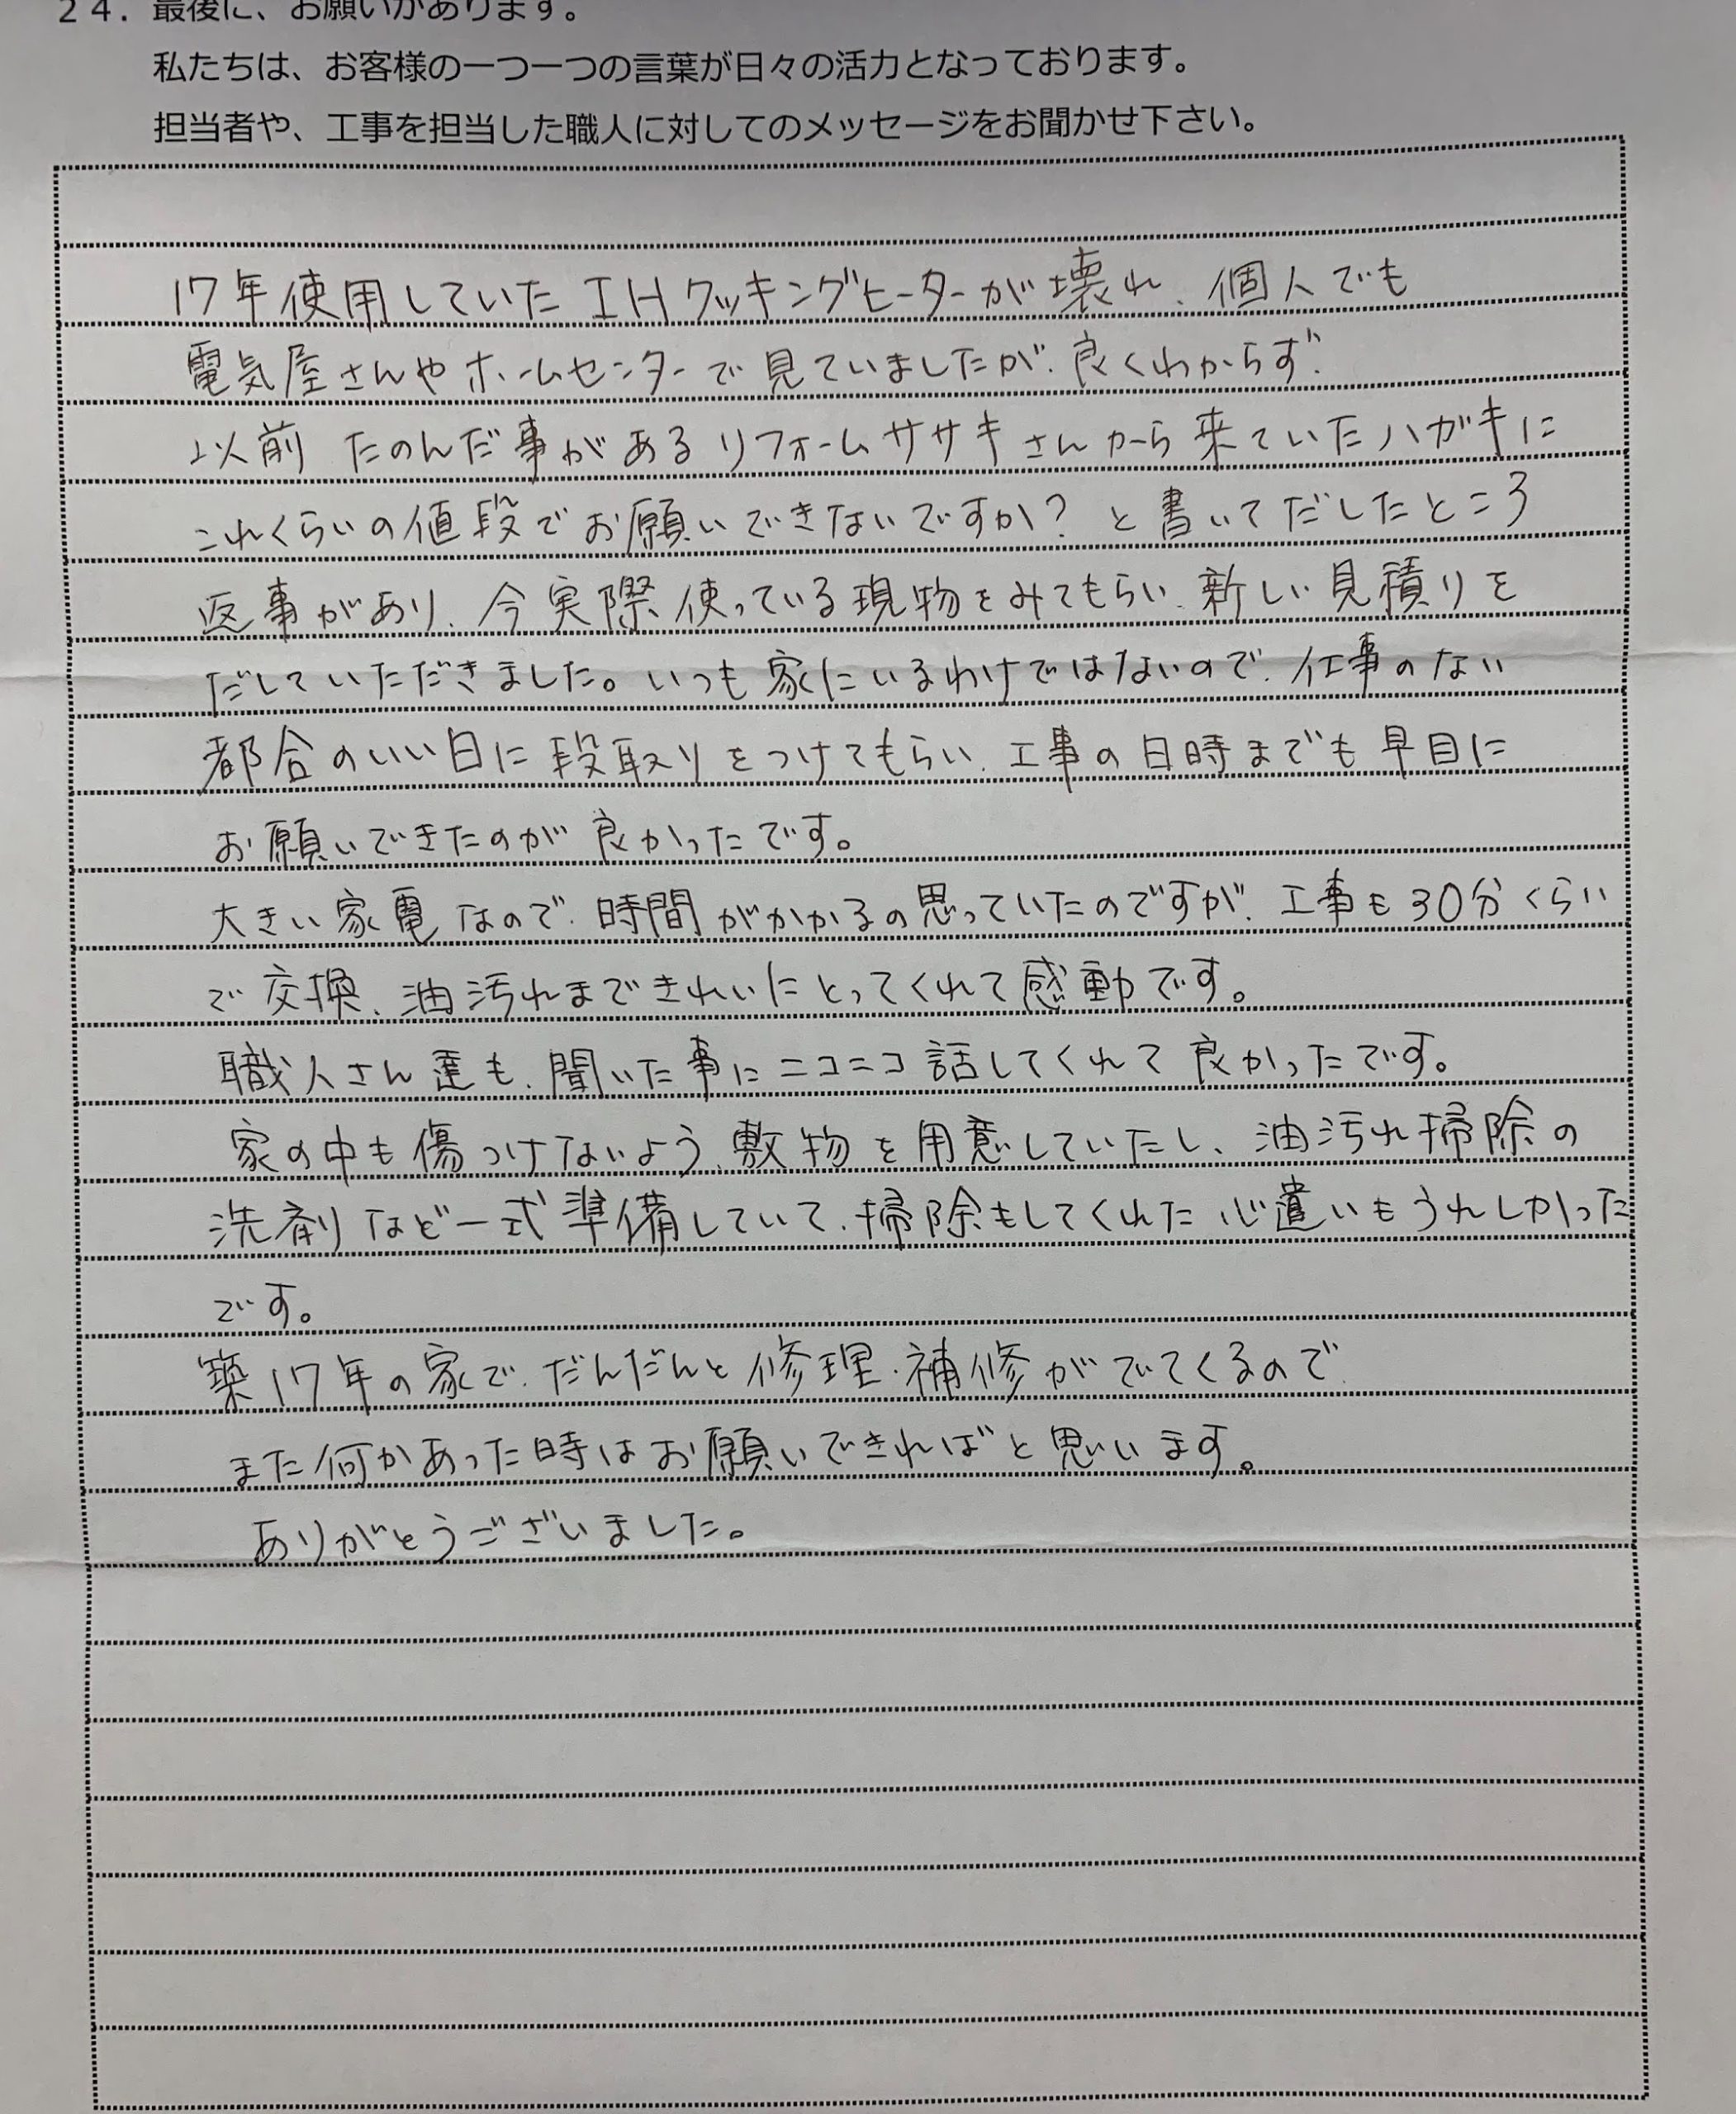 ２４．最後に、お願いがあります。
私たちは、お客様の一つ一つの言葉が日々の活力となっております。
担当者や、工事を担当した職人に対してのメッセージをお聞かせ下さい。
17年使用していたIHクッキングヒーターが壊れ、個人でも
電気屋さんやホームセンターで見ていましたが、良くわからず、
以前たのんだ事があるリフォームササキさんから来ていたハガキに
これくらいの値段でお願いできないですか？と書いてだしたところ
返事があり、今実際使っている現物をみてもらい、新しい見積りを
だしていただきました。いつも家にいるわけではないので、仕事のない
都合のいい日に段取りをつけてもらい、工事の日時までも早目に
お願いできたのが良かったです。
大きい家電なので、時間がかかるの思っていたのですが、工事も30分くらい
で交換、油汚れまできれいにとってくれて感動です。
職人さん達も、聞いた事にニコニコ話してくれて良かったです。
家の中も傷つけないよう、敷物を用意していたし、油汚れ掃除の
洗剤など一式準備していて、掃除もしてくれた心遣いもうれしかった
です。
築17年の家で、だんだんと修理・補修がでてくるので、
また何かあった時はお願いできればと思います。
ありがとうございました。